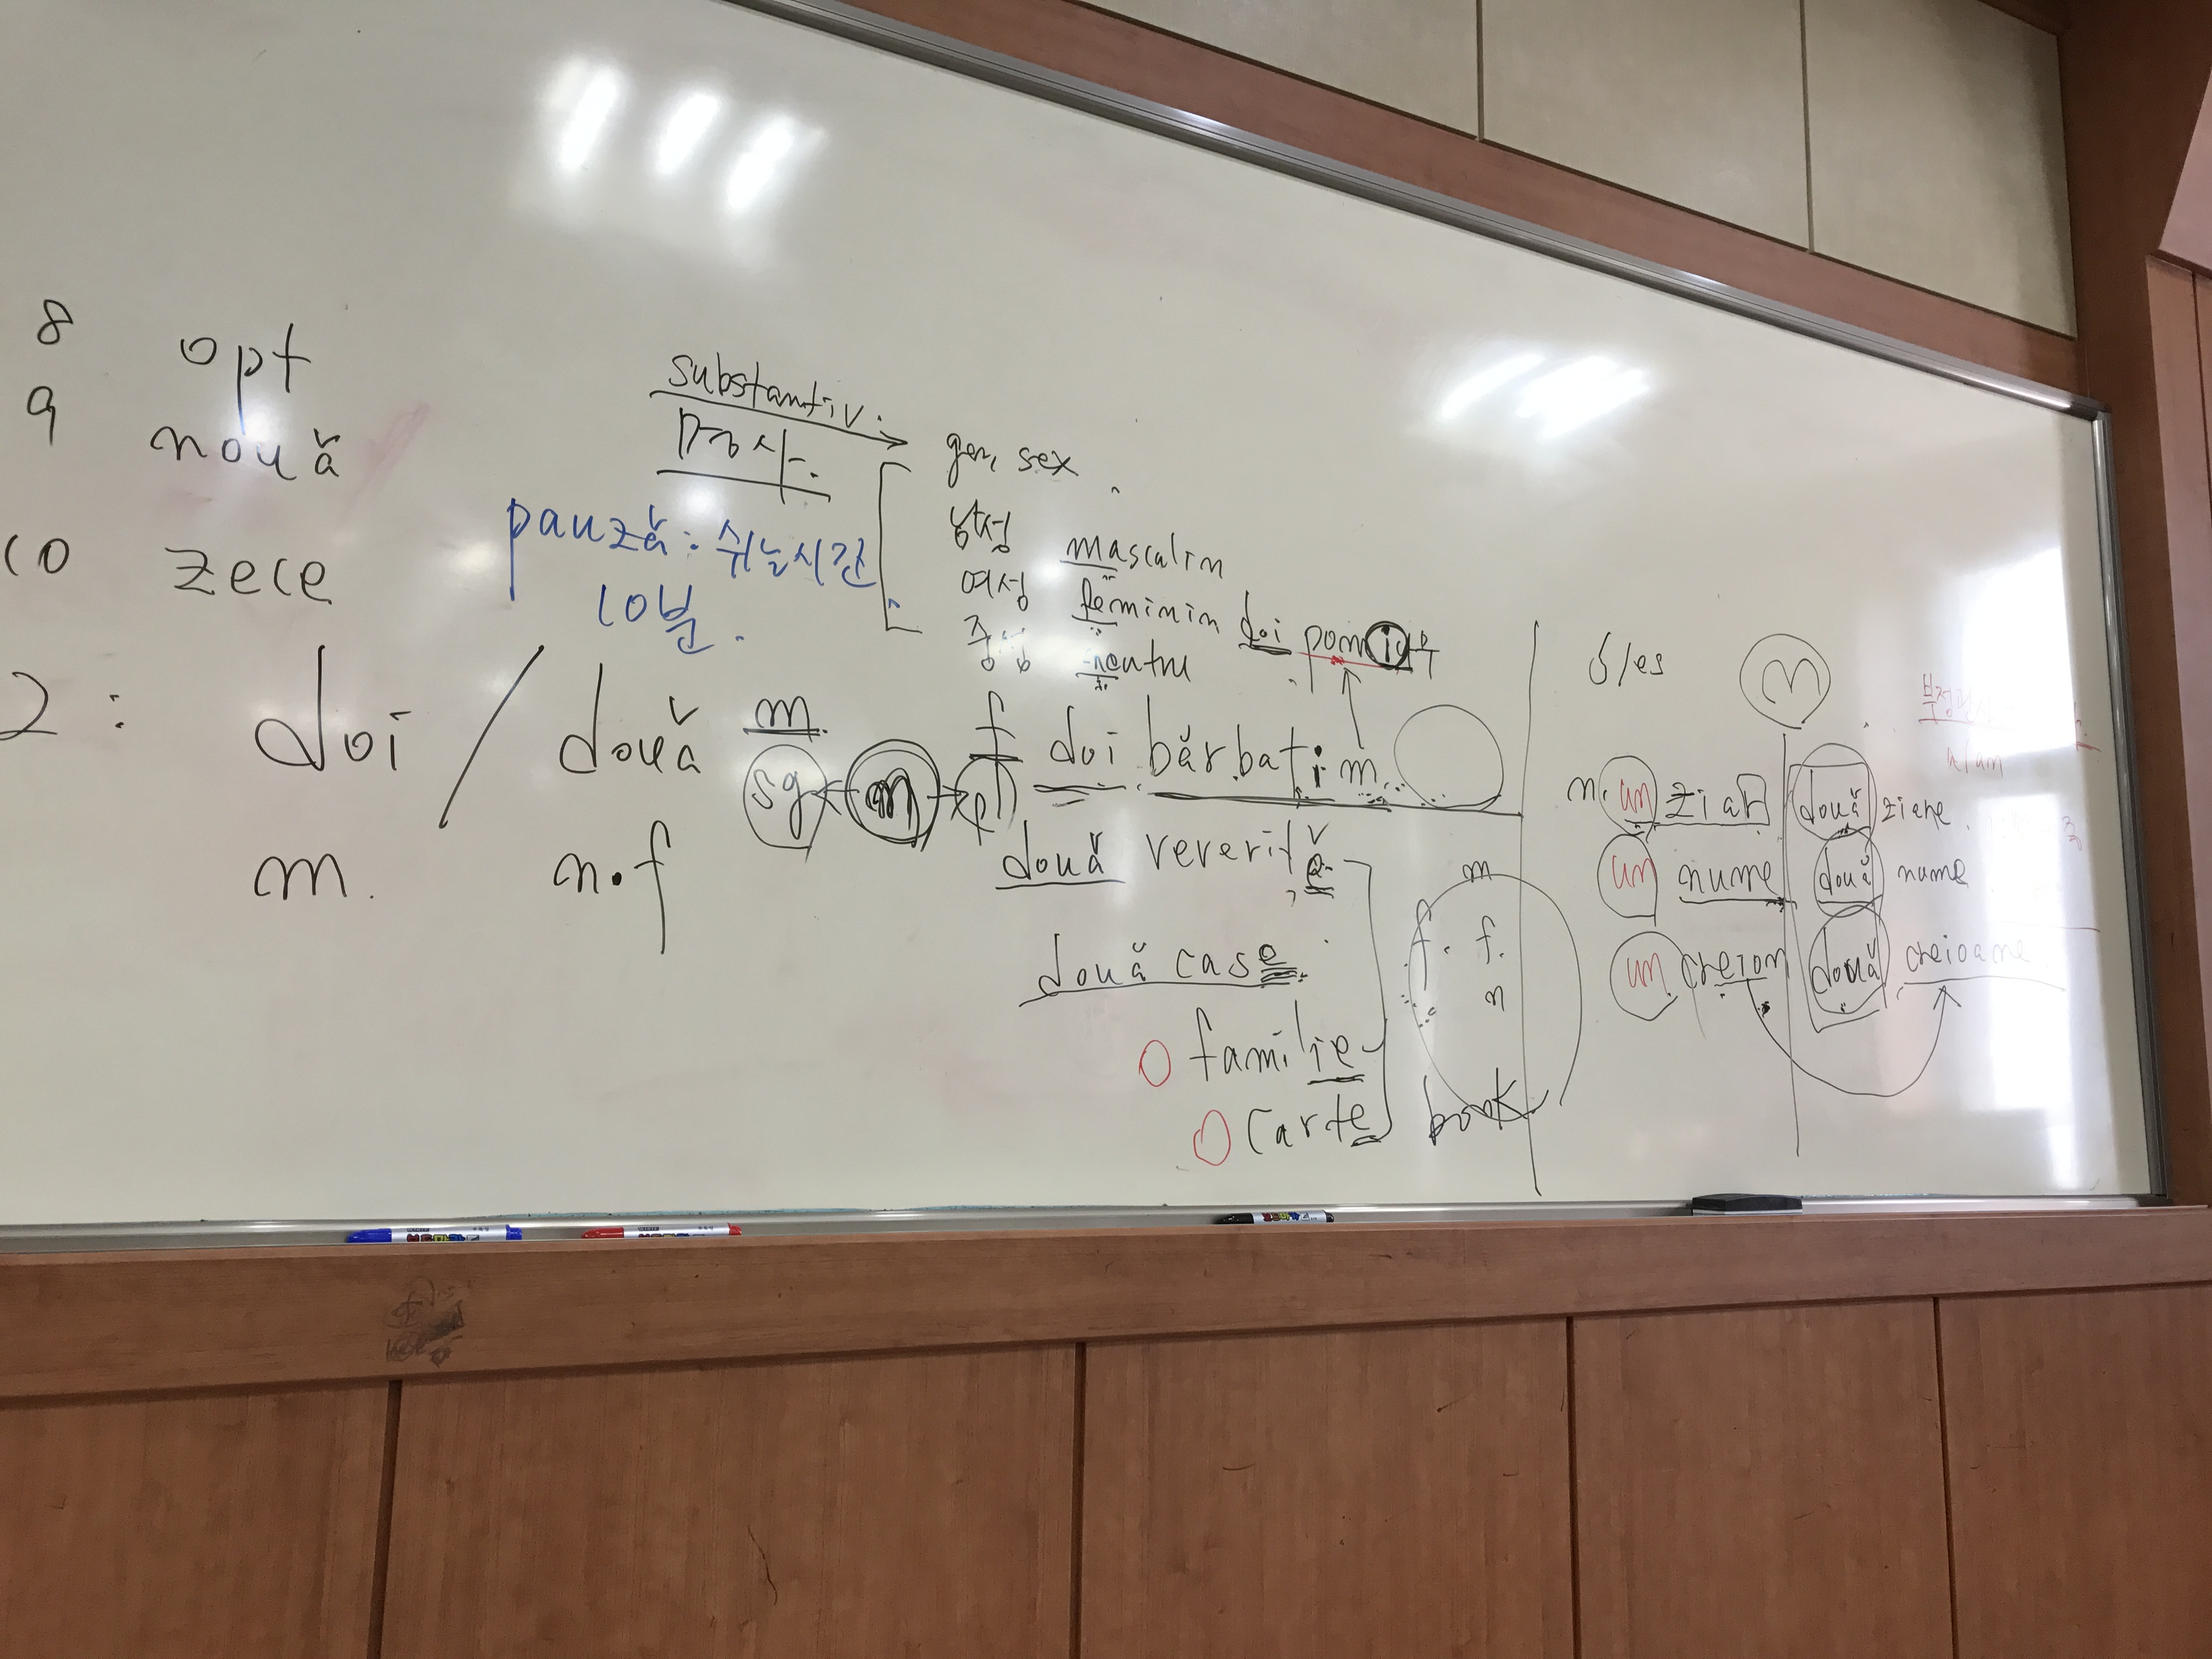 8 opt
9 nouă
10 zece
2 : doi / două
m. n.f
substantiv.
명사.
pauză : 쉬는시간
10분.
gen, sex
남성 masculin
여성 feminin
중성 neutru
doi pomi
m f
sg m pl
doi bărbați m.
două veverițe
două case
familie
carte book
m
f. f.
n
o/es
n
n. un ziar două ziare
un nume două nume
un creion două creioane